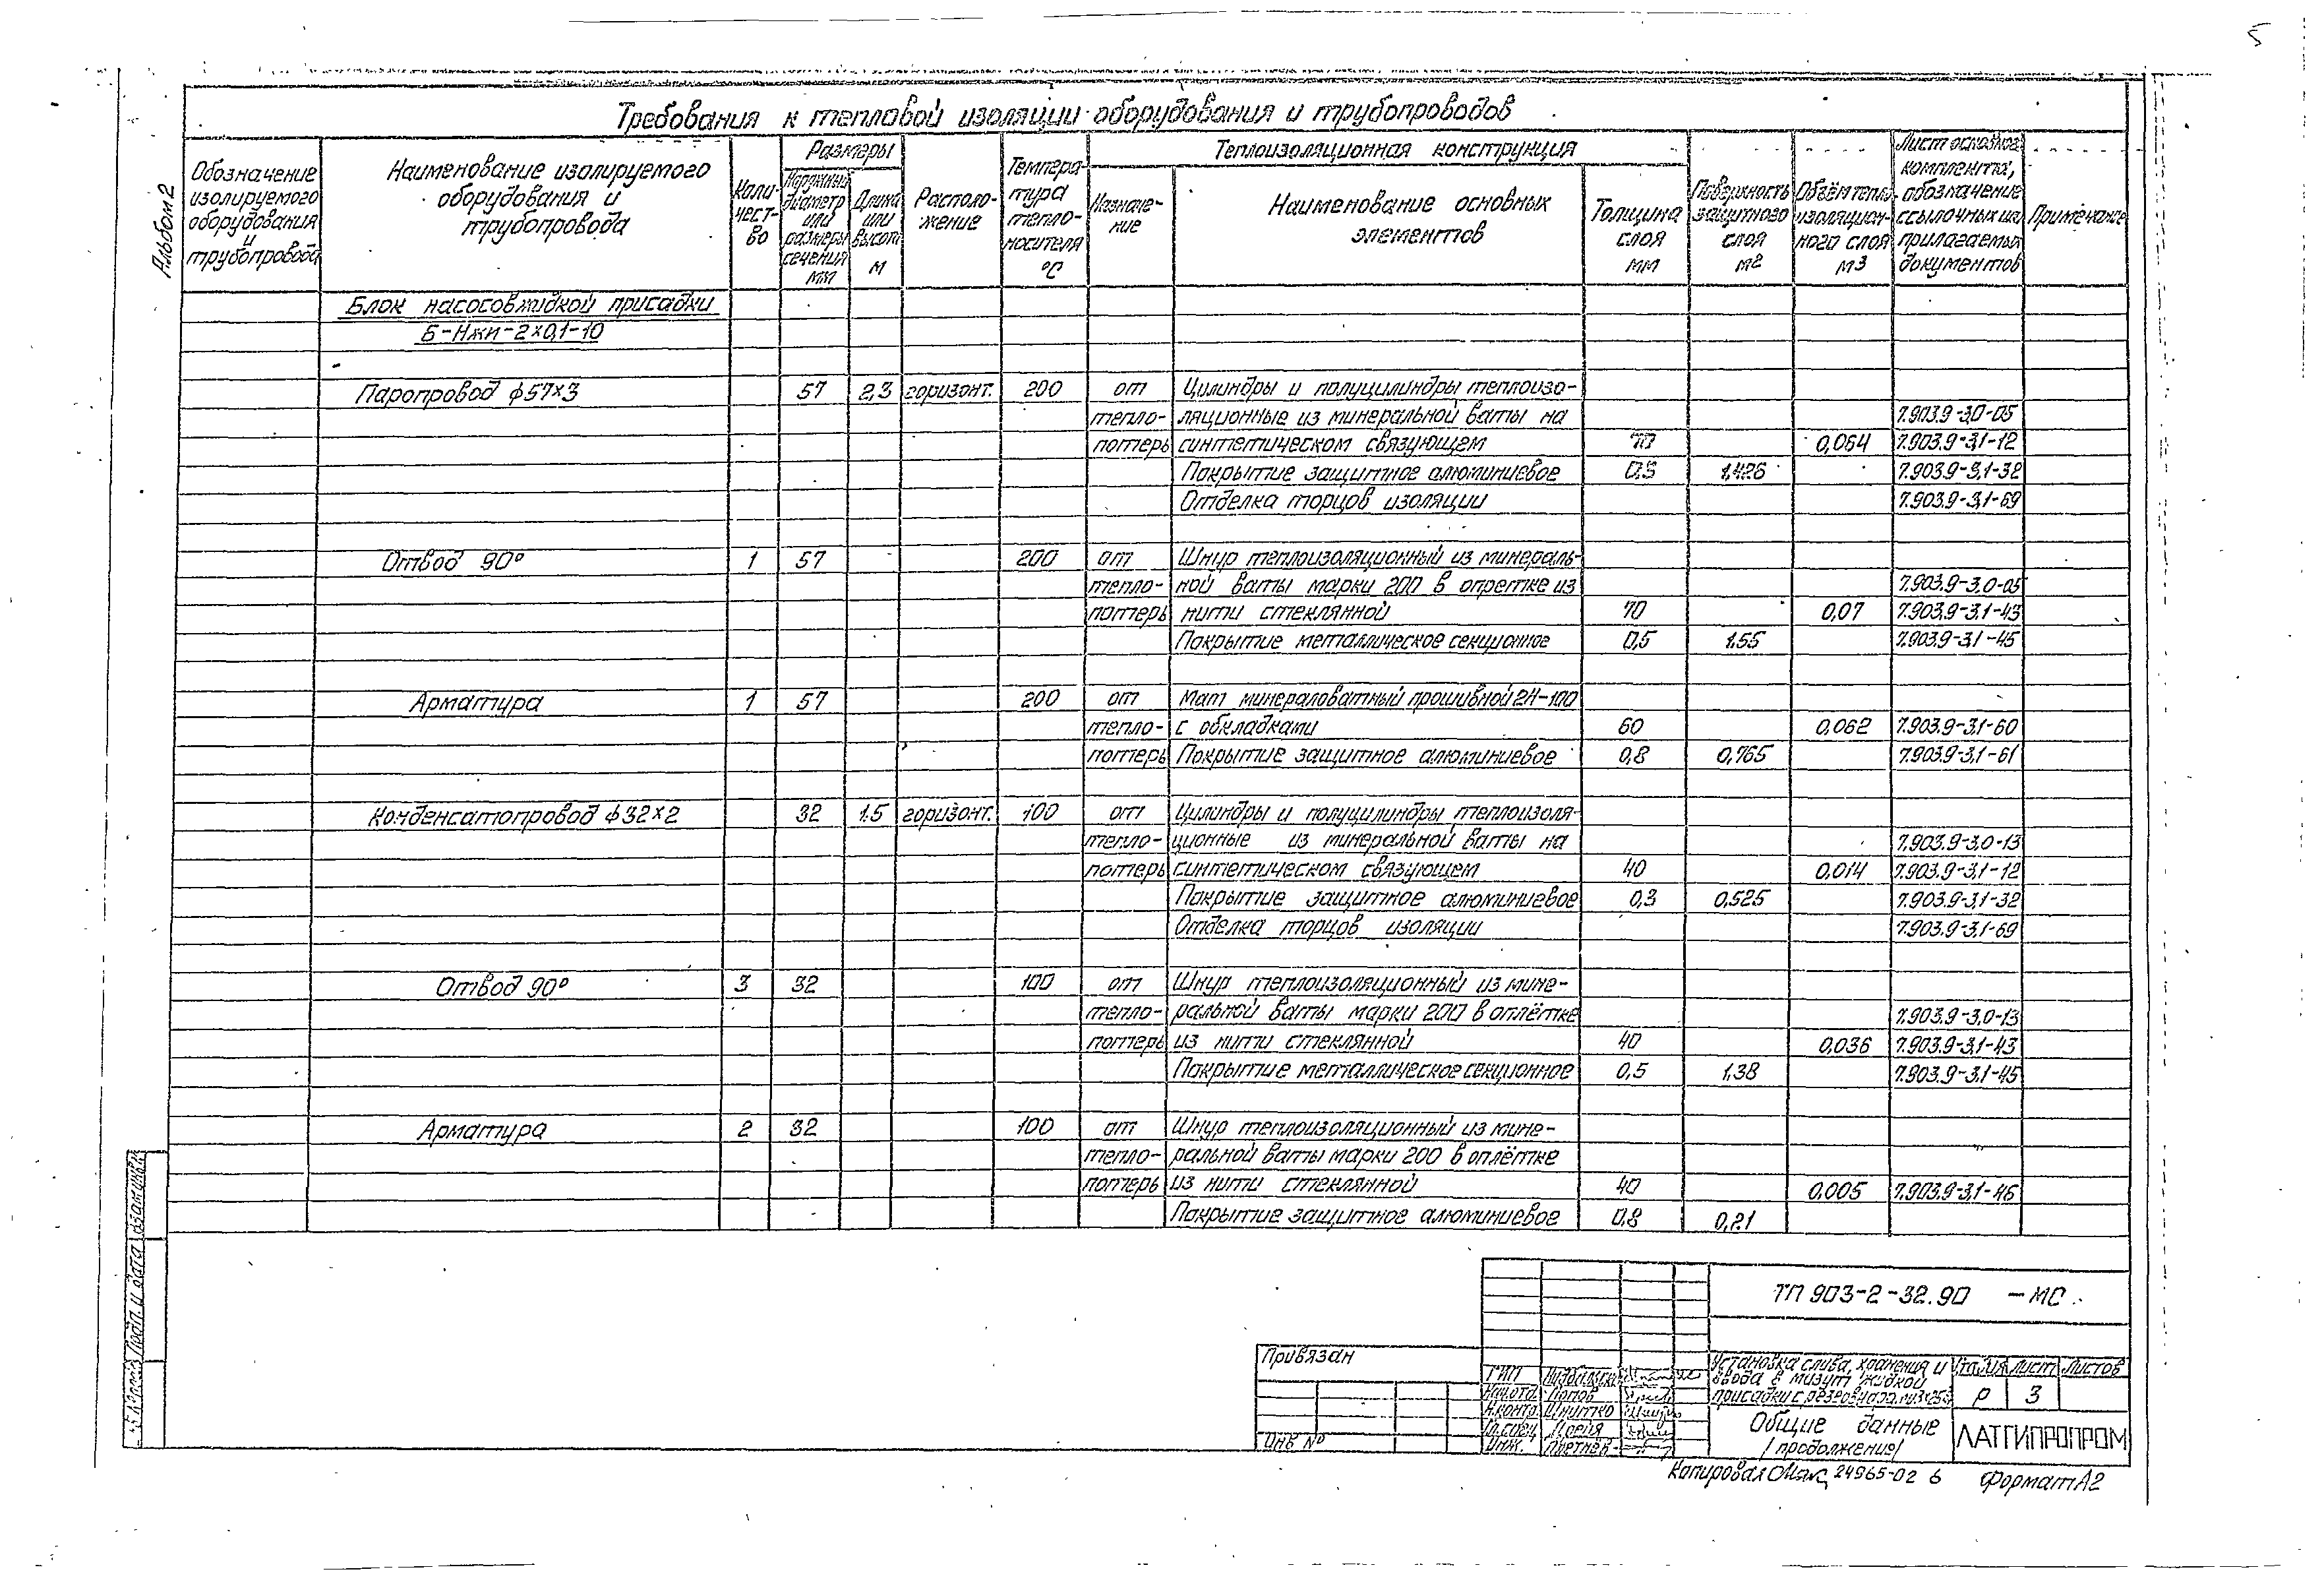 5
Альбом 2
Требования к тепловой изоляции оборудования и трубопроводов
Обозначение изолируемого оборудования и трубопровода
Наименование изолируемого оборудования и трубопровода
Коли- чест- во
Размеры
Наружный диаметр или размеры сечения мм
Длина или высот м
Располо- жение
Темпера- тура тепло- носителя °С
Теплоизоляционная конструкция
Назначе- ние
Наименование основных элементов
Толщина слоя мм
Поверхность защитного слоя м2
Объём тепло- изоляцион- ного слоя м3
Лист основног комплекта, обозначение ссылочных ил прилагаемых документов
Примечание
Блок насосов жидкой присадки
Б-Нжп-2×0,1-10
Паропровод ф57×3 57 2,3 горизонт. 200 от Цилиндры и полуцилиндры теплоизо-
тепло- ляционные из минеральной ваты на 7.903.9-3.0-05
потерь синтетическом связующем 70 0,064 7.903.9-3.1-12
Покрытие защитное алюминиевое 0,5 1,426 7.903.9-3.1-32
Отделка торцов изоляции 7.903.9-3.1-69
Отвод 90° 1 57 200 от Шнур теплоизоляционный из минераль-
тепло- ной ваты марки 200 в опретке из 7.903.9-3.0-05
потерь нити стеклянной 70 0,07 7.903.9-3.1-43
Покрытие металлическое секционное 0,5 1.55 7.903.9-3.1-45
Арматура 1 57 200 от Мат минераловатный прошивной 2М-100
тепло- с обкладками 60 0,062 7.903.9-3.1-60
потерь Покрытие защитное алюминиевое 0,8 0,765 7.903.9-3.1-61
Конденсатопровод ф32×2 32 1.5 горизонт. 100 от Цилиндры и полуцилиндры теплоизоля-
тепло- ционные из минеральной ваты на 7.903.9-3.0-13
потерь синтетическом связующем 40 0,014 7.903.9-3.1-12
Покрытие защитное алюминиевое 0,3 0,525 7.903.9-3.1-32
Отделка торцов изоляции 7.903.9-3.1-69
Отвод 90° 3 32 100 от Шнур теплоизоляционный из мине-
тепло- ральной ваты марки 200 в оплётке 7.903.9-3.0-13
потерь из нити стеклянной 40 0,036 7.903.9-3.1-43
Покрытие металлическое секционное 0,5 1,38 7.903.9-3.1-45
Арматура 2 32 100 от Шнур теплоизоляционный из мине-
тепло- ральной ваты марки 200 в оплётке
потерь из нити стеклянной 40 0.005 7.903.9-3.1-46
Покрытие защитное алюминиевое 0,8 0,21
Подп. и дата
ТП 903-2-32.90 -МС
Привязан
Инв №
ГИП
Нач.отд. Попов
Н.контр. Шнитко
Гл.спец.
Инж.
Установка слива, хранения и
ввода в мазут жидкой
присадки с
Стадия Лист Листов
Р 3
Общие данные
/продолжение/
ЛАТГИПРОПРОМ
Копировал 24965-02 6 Формат А2